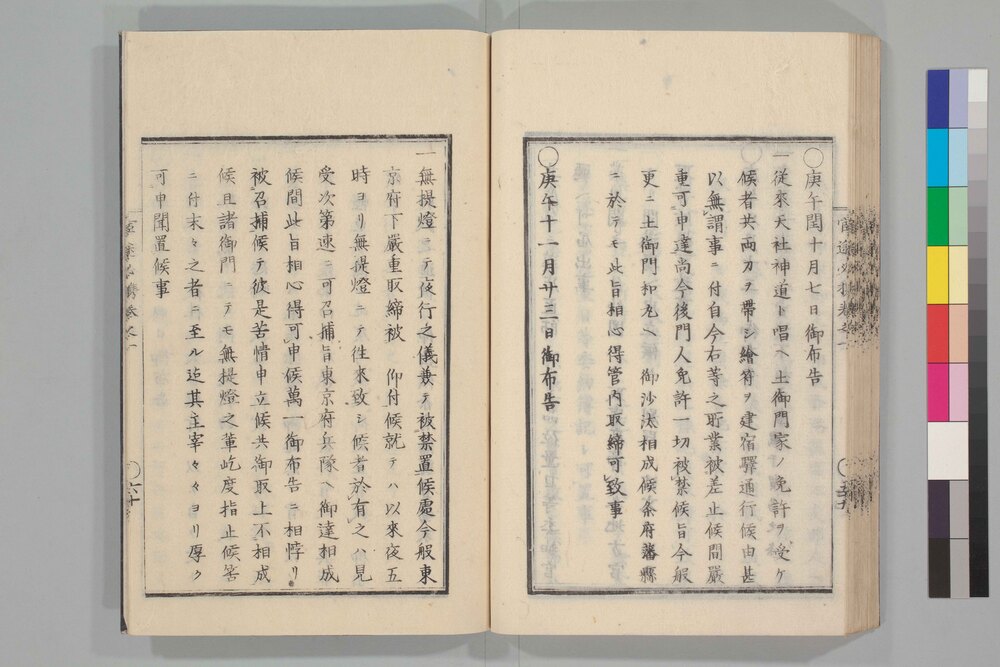 〇庚午閏十月七日御布告
一從來天社神道ト唱ヘ土御門家ノ免許ヲ受ケ
候者共両刀ヲ帶シ繪符ヲ建宿驛通行候由甚
以無謂事ニ付自今右等之所業被差止候間嚴
重可申達尚今後門人免許一切被禁候旨今般
更ニ土御門和丸ヘ御沙汰相成候条府藩縣
ニ於テモ此旨相心得管内取締可致事
〇庚午十一月廿三日御布告
一無提燈ニテ夜行之儀兼テ被禁置候處今般東
京府下嚴重取締被 仰付候就テハ以來夜五
時ヨリ無提燈ニテ往來致シ候者於有之ハ見
受次第速ニ可召捕旨東京府兵隊ヘ御達相成
候間此旨相心得可申候萬一御布告ニ相悖リ
被召捕候テ彼是苦情申立候共御取上不相成
候且諸御門ニテモ無提燈之輩屹度指止候筈
ニ付末々之者ニ至ル迄其主宰々々ヨリ厚ク
可申聞置候事
〇六十